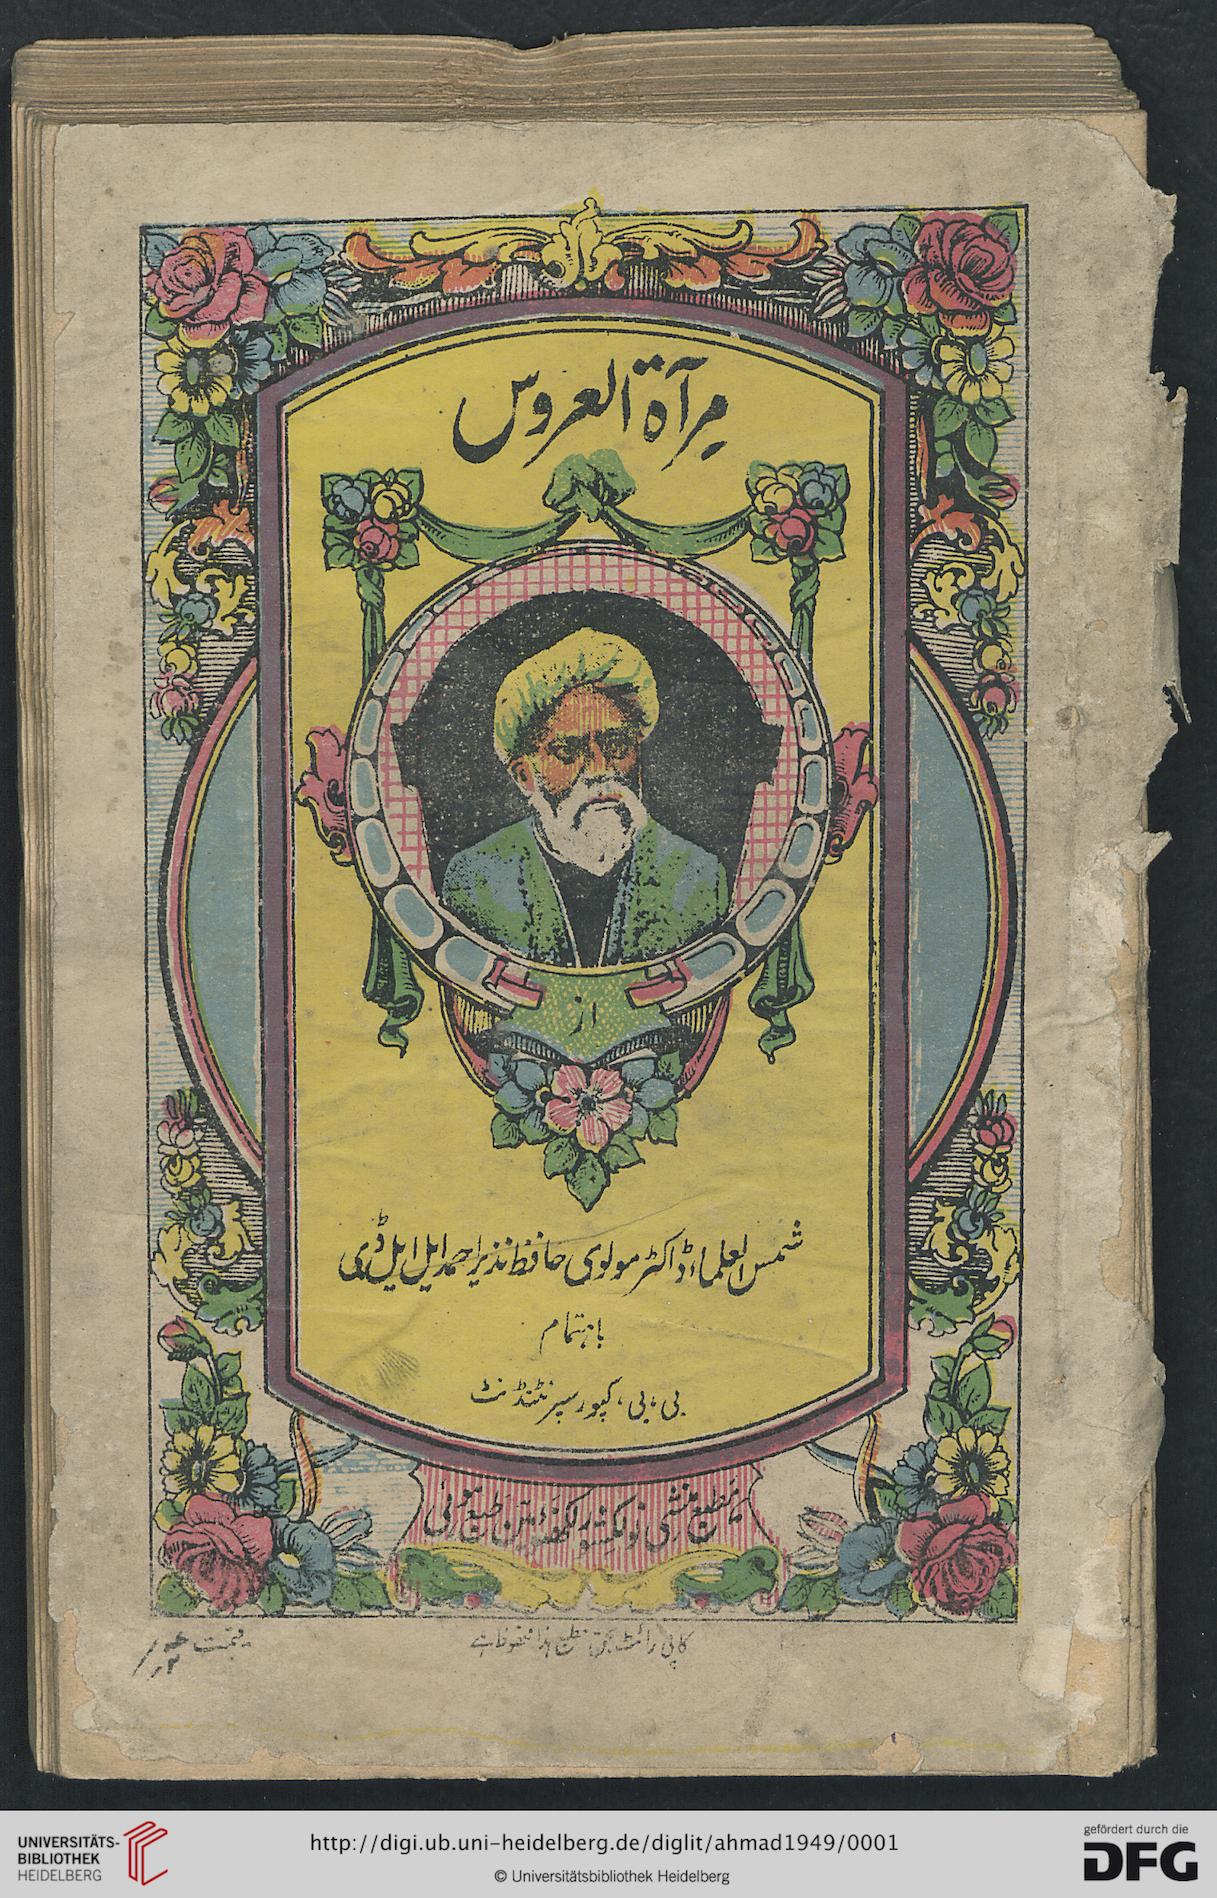 مرآة العروس
از
شمس العلماء ڈاکٹر مولوی حافظ نذیر احمد ایل ایل ڈی
باہتمام
بی، بی، کپور سپرنٹنڈنٹ
مطبع منشی نولکشور لکھنؤ میں طبع ہوئی
کاپی رائٹ بحق مطبع ہذا محفوظ ہے
قیمت
UNIVERSITÄTS-
BIBLIOTHEK
HEIDELBERG
http://digi.ub.uni-heidelberg.de/diglit/ahmad1949/0001
© Universitätsbibliothek Heidelberg
gefördert durch die
DFG